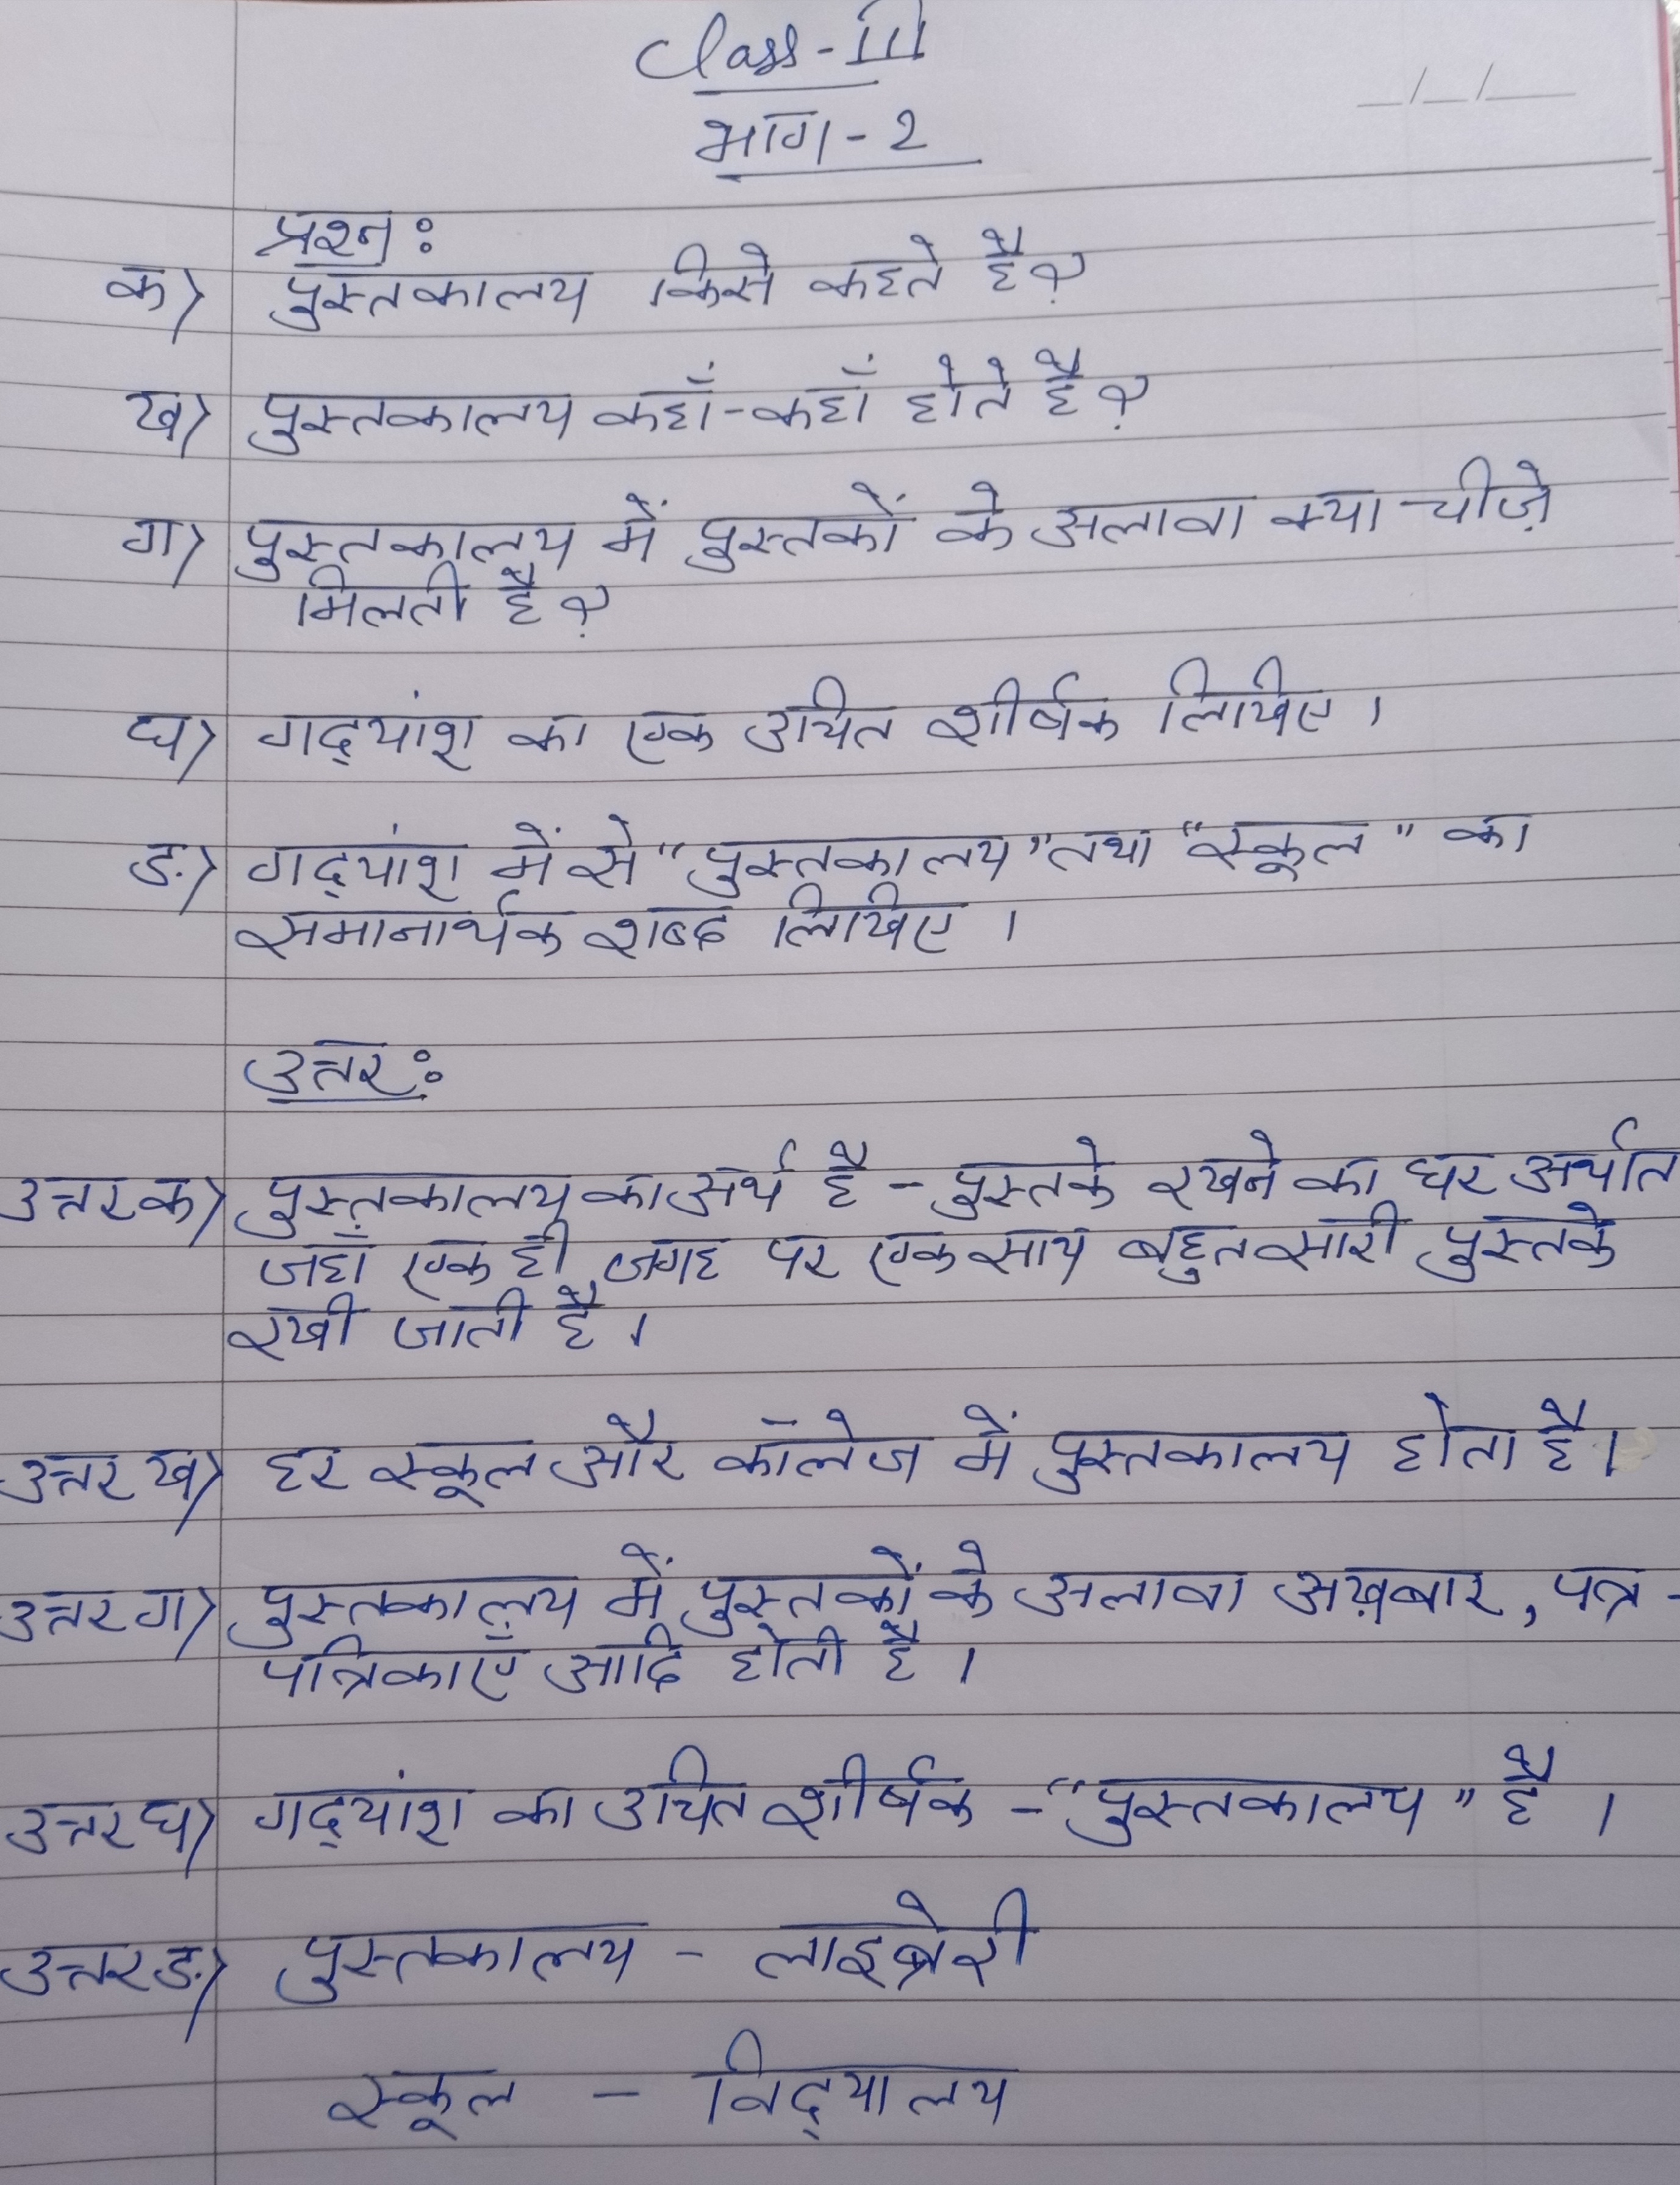 Class-III
भाग-2
__/__/____
प्रश्न:
क) पुस्तकालय किसे कहते है?
ख) पुस्तकालय कहाँ-कहाँ होते है?
ग) पुस्तकालय में पुस्तकों के अलावा क्या चीज़े
मिलती है?
घ) गद्यांश का एक उचित शीर्षक लिखिए।
ङ) गद्यांश में से "पुस्तकालय" तथा "स्कूल" का
समानार्थक शब्द लिखिए।
उत्तर:
उत्तर क) पुस्तकालय का अर्थ है - पुस्तके रखने का घर अर्थात
जहाँ एक ही जगह पर एक साथ बहुत सारी पुस्तके
रखी जाती है।
उत्तर ख) हर स्कूल और कॉलेज में पुस्तकालय होता है।
उत्तर ग) पुस्तकालय में पुस्तकों के अलावा अख़बार, पत्र-
पत्रिकाएँ आदि होती है।
उत्तर घ) गद्यांश का उचित शीर्षक - "पुस्तकालय" है।
उत्तर ङ) पुस्तकालय - लाइब्रेरी
स्कूल - विद्यालय